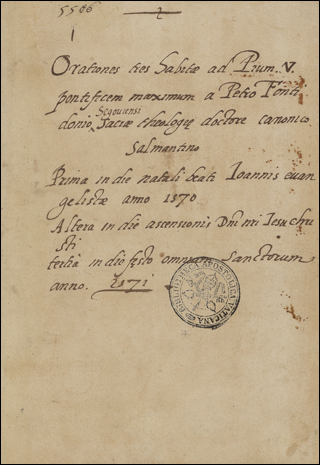 5506
Orationes tres habitæ ad Pium. V.
pontificem maximum a Petro Fonti
donio Segouansi sacræ theologię doctore canonico
salmantino
Prima in die natali beati Ioannis euan
gelistæ anno 1570
Altera in die ascensionis Dñi mi Iesu chri
sti
tertia in die festo omnium sanctorum
anno. 1571
BIBLIOTHECA APOSTOLICA VATICANA